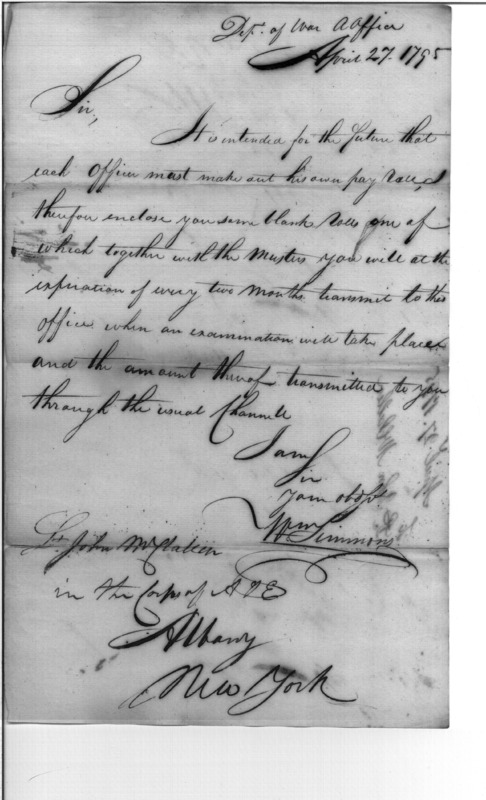 Dept. of War A Office
April 27. 1795
Sir,
It is intended for the future that
each Officer must make out his own pay Rolls, I
therefore enclose you some blank Rolls one of
which together with the Musters you will at the
expiration of every two Months transmit to this
office when an examination will take place
and the amount thereof transmitted to you
through the usual Channell
I am
Sir
your obdt
Wm Simmons
John
in the Corps of A & E
Albany
New York